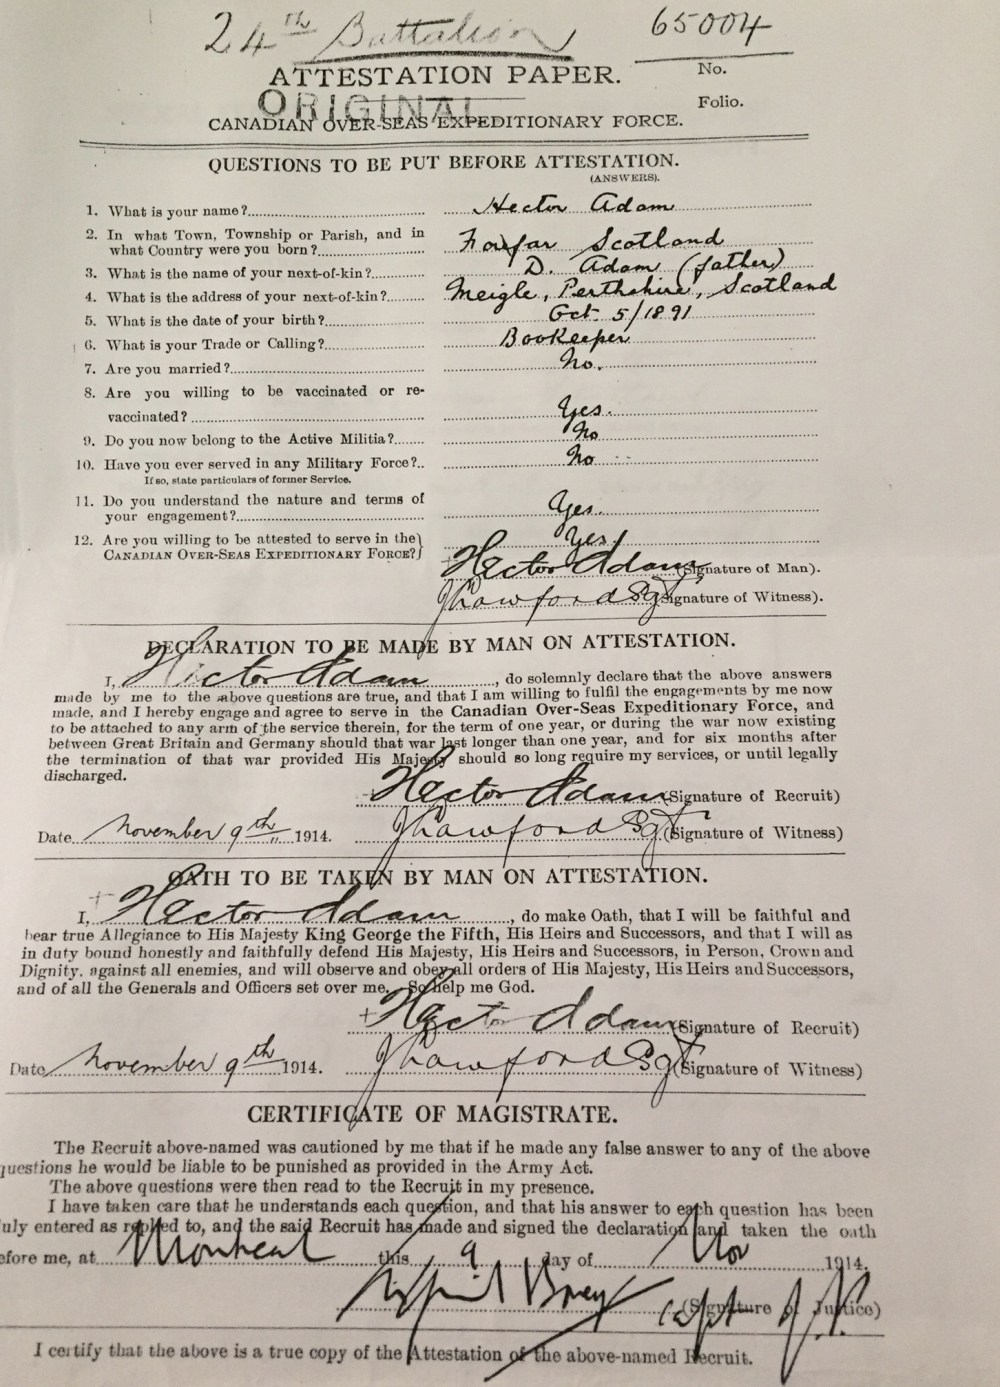 24th Battalion
65004
ATTESTATION PAPER.
No.
ORIGINAL
Folio.
CANADIAN OVER-SEAS EXPEDITIONARY FORCE.
QUESTIONS TO BE PUT BEFORE ATTESTATION.
(ANSWERS).
1. What is your name? Hector Adam
2. In what Town, Township or Parish, and in
what Country were you born? Forfar Scotland
3. What is the name of your next-of-kin? D. Adam (father)
4. What is the address of your next-of-kin? Meigle, Perthshire, Scotland
5. What is the date of your birth? Oct 5/1891
6. What is your Trade or Calling? Bookeeper
7. Are you married? No.
8. Are you willing to be vaccinated or re-
vaccinated? Yes.
9. Do you now belong to the Active Militia? No
10. Have you ever served in any Military Force? No
If so, state particulars of former Service.
11. Do you understand the nature and terms of
your engagement? Yes.
12. Are you willing to be attested to serve in the
CANADIAN OVER-SEAS EXPEDITIONARY FORCE? Yes
Hector Adam (Signature of Man).
J Crawford Sgt (Signature of Witness).
DECLARATION TO BE MADE BY MAN ON ATTESTATION.
I, Hector Adam, do solemnly declare that the above answers
made by me to the above questions are true, and that I am willing to fulfil the engagements by me now
made, and I hereby engage and agree to serve in the Canadian Over-Seas Expeditionary Force, and
to be attached to any arm of the service therein, for the term of one year, or during the war now existing
between Great Britain and Germany should that war last longer than one year, and for six months after
the termination of that war provided His Majesty should so long require my services, or until legally
discharged.
Hector Adam (Signature of Recruit)
Date November 9th 1914. J Crawford Sgt (Signature of Witness)
OATH TO BE TAKEN BY MAN ON ATTESTATION.
I, Hector Adam, do make Oath, that I will be faithful and
bear true Allegiance to His Majesty King George the Fifth, His Heirs and Successors, and that I will as
in duty bound honestly and faithfully defend His Majesty, His Heirs and Successors, in Person, Crown and
Dignity, against all enemies, and will observe and obey all orders of His Majesty, His Heirs and Successors,
and of all the Generals and Officers set over me. So help me God.
Hector Adam (Signature of Recruit)
Date November 9th 1914. J Crawford Sgt (Signature of Witness)
CERTIFICATE OF MAGISTRATE.
The Recruit above-named was cautioned by me that if he made any false answer to any of the above
questions he would be liable to be punished as provided in the Army Act.
The above questions were then read to the Recruit in my presence.
I have taken care that he understands each question, and that his answer to each question has been
uly entered as replied to, and the said Recruit has made and signed the declaration and taken the oath
efore me, at Montreal this 9 day of Nov 1914.
Capt J.P. (Signature of Justice)
I certify that the above is a true copy of the Attestation of the above-named Recruit.